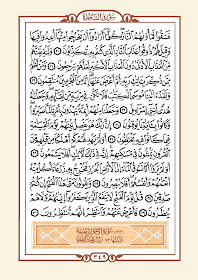 سورة السجدة
فَسَقُوا فَمَأْوَاهُمُ النَّارُ كُلَّمَا أَرَادُوا أَن يَخْرُجُوا مِنْهَا أُعِيدُوا فِيهَا
وَقِيلَ لَهُمْ ذُوقُوا عَذَابَ النَّارِ الَّذِي كُنتُم بِهِ تُكَذِّبُونَ ۝ وَلَنُذِيقَنَّهُم
مِّنَ الْعَذَابِ الْأَدْنَىٰ دُونَ الْعَذَابِ الْأَكْبَرِ لَعَلَّهُمْ يَرْجِعُونَ ۝ وَمَنْ أَظْلَمُ
مِمَّن ذُكِّرَ بِآيَاتِ رَبِّهِ ثُمَّ أَعْرَضَ عَنْهَا إِنَّا مِنَ الْمُجْرِمِينَ مُنتَقِمُونَ ۝
وَلَقَدْ آتَيْنَا مُوسَى الْكِتَابَ فَلَا تَكُن فِي مِرْيَةٍ مِّن لِّقَائِهِ وَجَعَلْنَاهُ
هُدًى لِّبَنِي إِسْرَائِيلَ ۝ وَجَعَلْنَا مِنْهُمْ أَئِمَّةً يَهْدُونَ بِأَمْرِنَا لَمَّا صَبَرُوا
وَكَانُوا بِآيَاتِنَا يُوقِنُونَ ۝ إِنَّ رَبَّكَ هُوَ يَفْصِلُ بَيْنَهُمْ يَوْمَ الْقِيَامَةِ
فِيمَا كَانُوا فِيهِ يَخْتَلِفُونَ ۝ أَوَلَمْ يَهْدِ لَهُمْ كَمْ أَهْلَكْنَا مِن قَبْلِهِم مِّنَ
الْقُرُونِ يَمْشُونَ فِي مَسَاكِنِهِمْ إِنَّ فِي ذَٰلِكَ لَآيَاتٍ أَفَلَا يَسْمَعُونَ ۝
أَوَلَمْ يَرَوْا أَنَّا نَسُوقُ الْمَاءَ إِلَى الْأَرْضِ الْجُرُزِ فَنُخْرِجُ بِهِ زَرْعًا تَأْكُلُ مِنْهُ
أَنْعَامُهُمْ وَأَنفُسُهُمْ أَفَلَا يُبْصِرُونَ ۝ وَيَقُولُونَ مَتَىٰ هَٰذَا الْفَتْحُ إِن كُنتُمْ
صَادِقِينَ ۝ قُلْ يَوْمَ الْفَتْحِ لَا يَنفَعُ الَّذِينَ كَفَرُوا إِيمَانُهُمْ وَلَا هُمْ
يُنظَرُونَ ۝ فَأَعْرِضْ عَنْهُمْ وَانتَظِرْ إِنَّهُم مُّنتَظِرُونَ ۝
٣٤٩